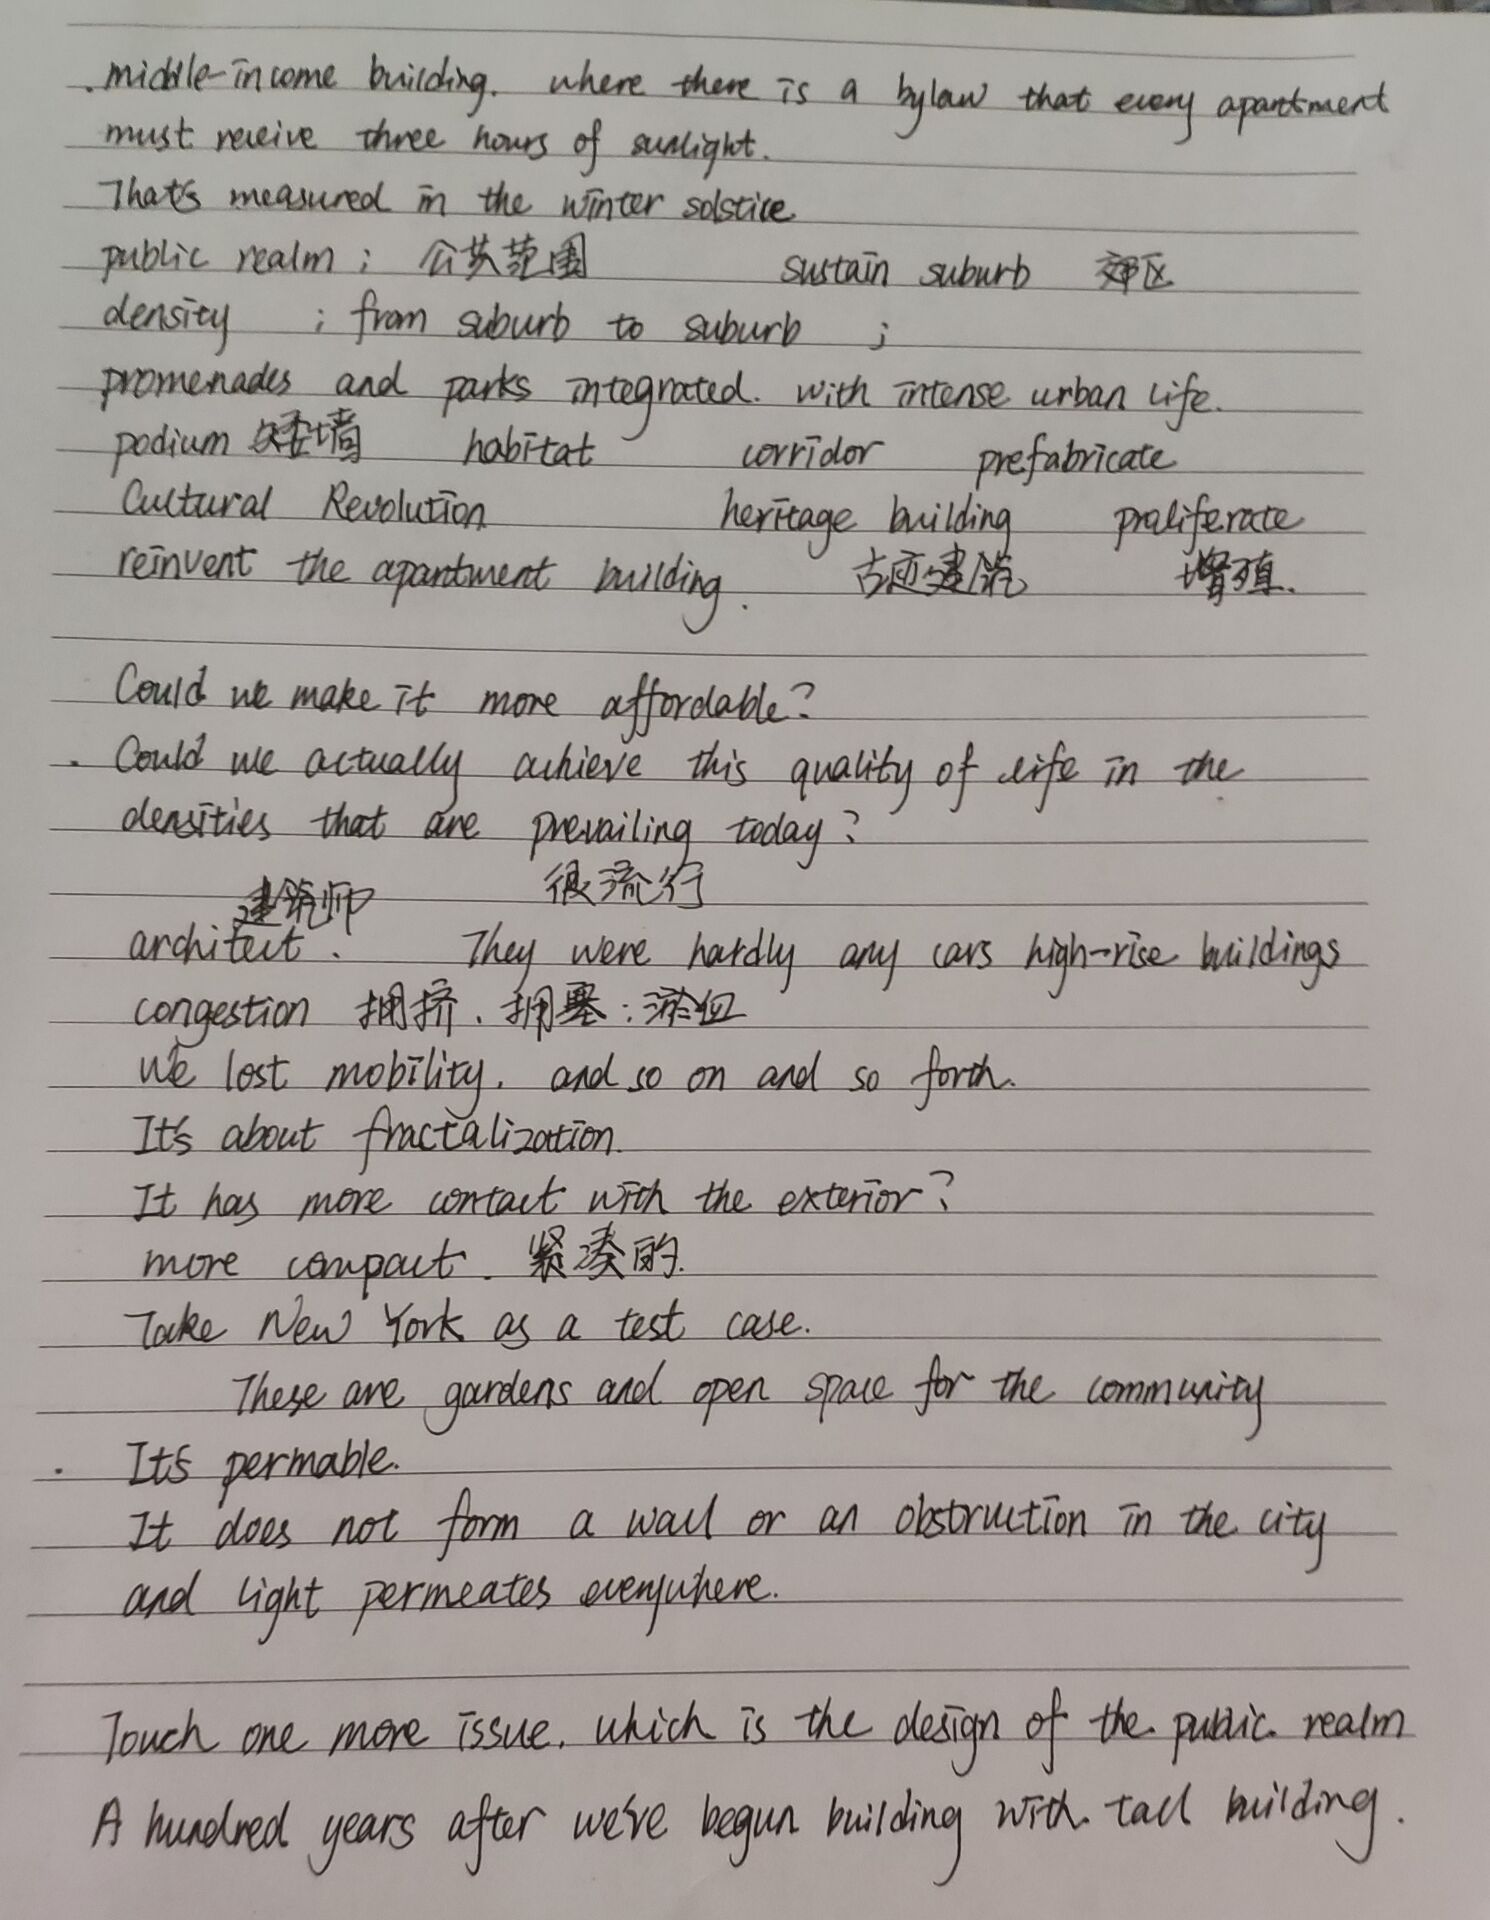 . middle-income building. where there is a bylaw that every apartment
must receive three hours of sunlight.
That's measured in the winter solstice
public realm ; 公共范围 sustain suburb 郊区
density ; from suburb to suburb ;
promenades and parks integrated. with intense urban life.
podium 矮墙 habitat corridor prefabricate
Cultural Revolution heritage building proliferate
reinvent the apartment building. 古迹建筑 增殖.
Could we make it more affordable?
. Could we actually achieve this quality of life in the
densities that are prevailing today?
建筑师 很流行
architect. They were hardly any cars high-rise buildings
congestion 拥挤. 拥塞: 淤血
We lost mobility. and so on and so forth.
It's about fractalization.
It has more contact with the exterior?
more compact. 紧凑的.
Take New York as a test case.
These are gardens and open space for the community
. It's permable.
It does not form a wall or an obstruction in the city
and light permeates everywhere.
Touch one more issue. which is the design of the public realm
A hundred years after we've begun building with tall building.